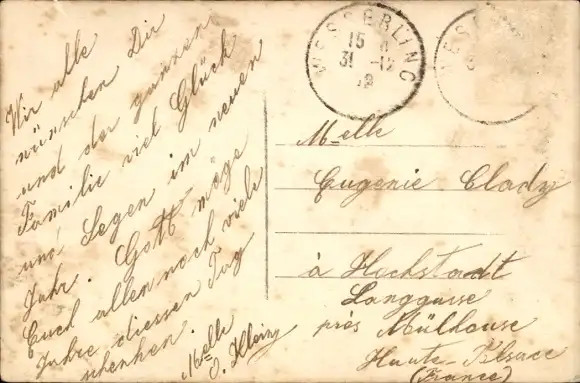 Wir alle
wünschen Dir
und der ganzen
Familie viel Glück
und Segen im neuen
Jahr. Gott möge
Euch allen noch viele
Jahre diessen Tag
schenken.
Melle
O. Kleiny
WESSERLING
15
31 -12
Melle
Eugenie Clady
à Hochstadt
Langgasse
près Mülhouse
Haute-Alsace
(France)